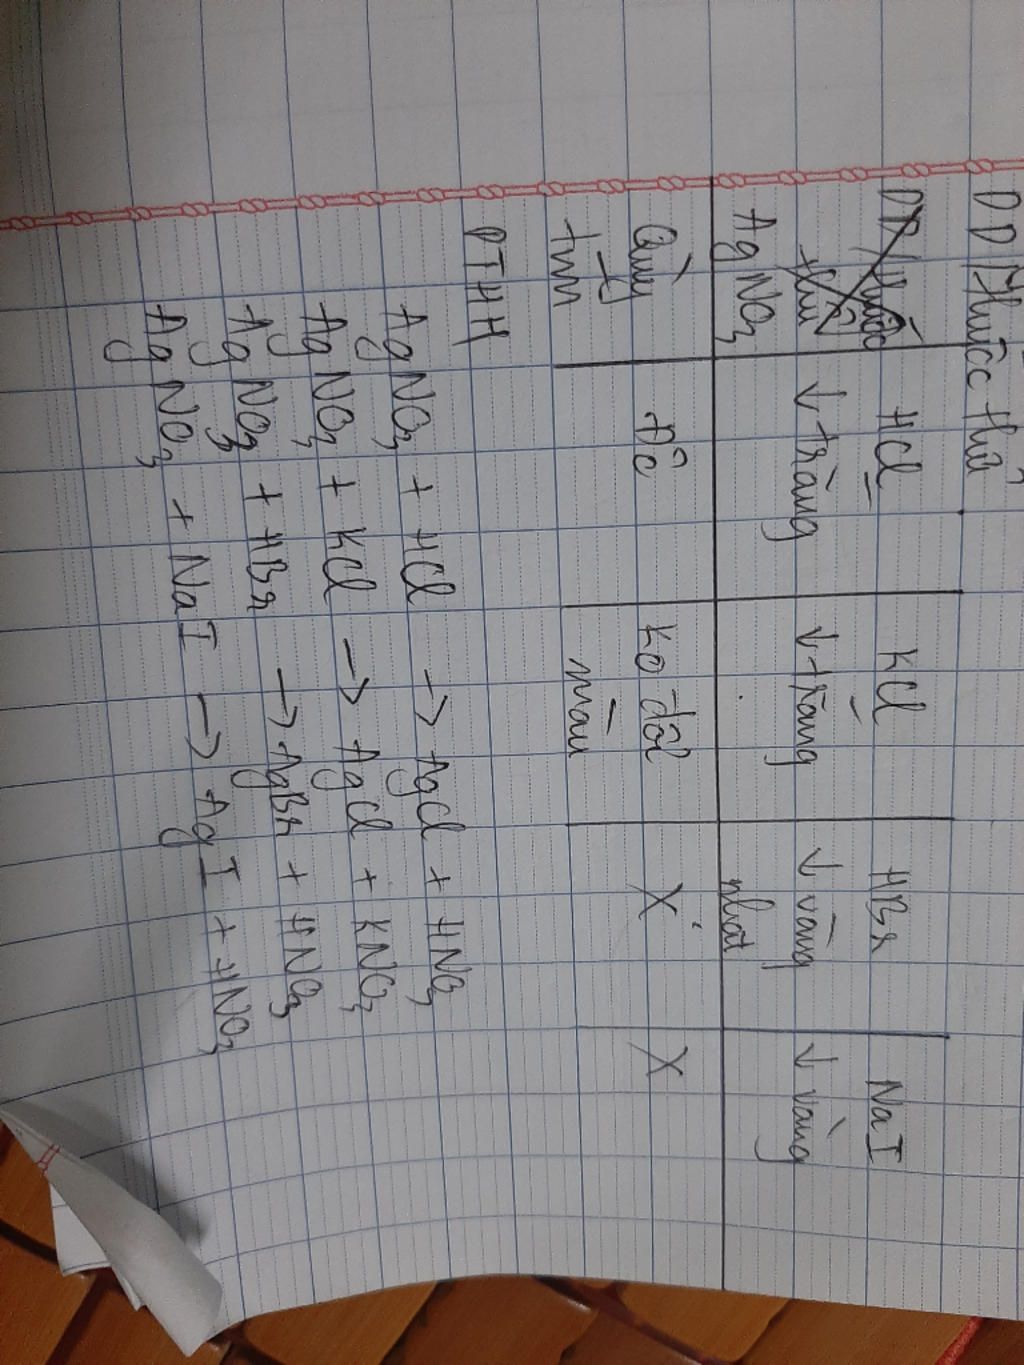 DD Thuốc thử HCl KCl HBr NaI
AgNO3 ↓ trắng ↓ trắng ↓ vàng nhạt ↓ vàng
Quỳ tím Đỏ ko đổi màu X X
PTHH
AgNO3 + HCl → AgCl + HNO3
AgNO3 + KCl → AgCl + KNO3
AgNO3 + HBr → AgBr + HNO3
AgNO3 + NaI → AgI + HNO3